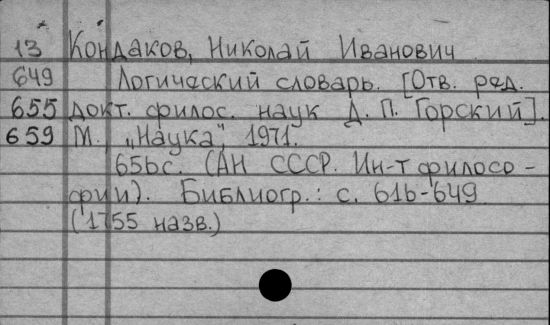 13 Кондаков, Николай Иванович
649 Логический словарь. [Отв. ред.
655 докт. филос. наук Д. П. Горский].
659 М., „Наука", 1971.
656с. (АН СССР. Ин-т филосо-
фии). Библиогр.: с. 616-649
(1755 назв.)